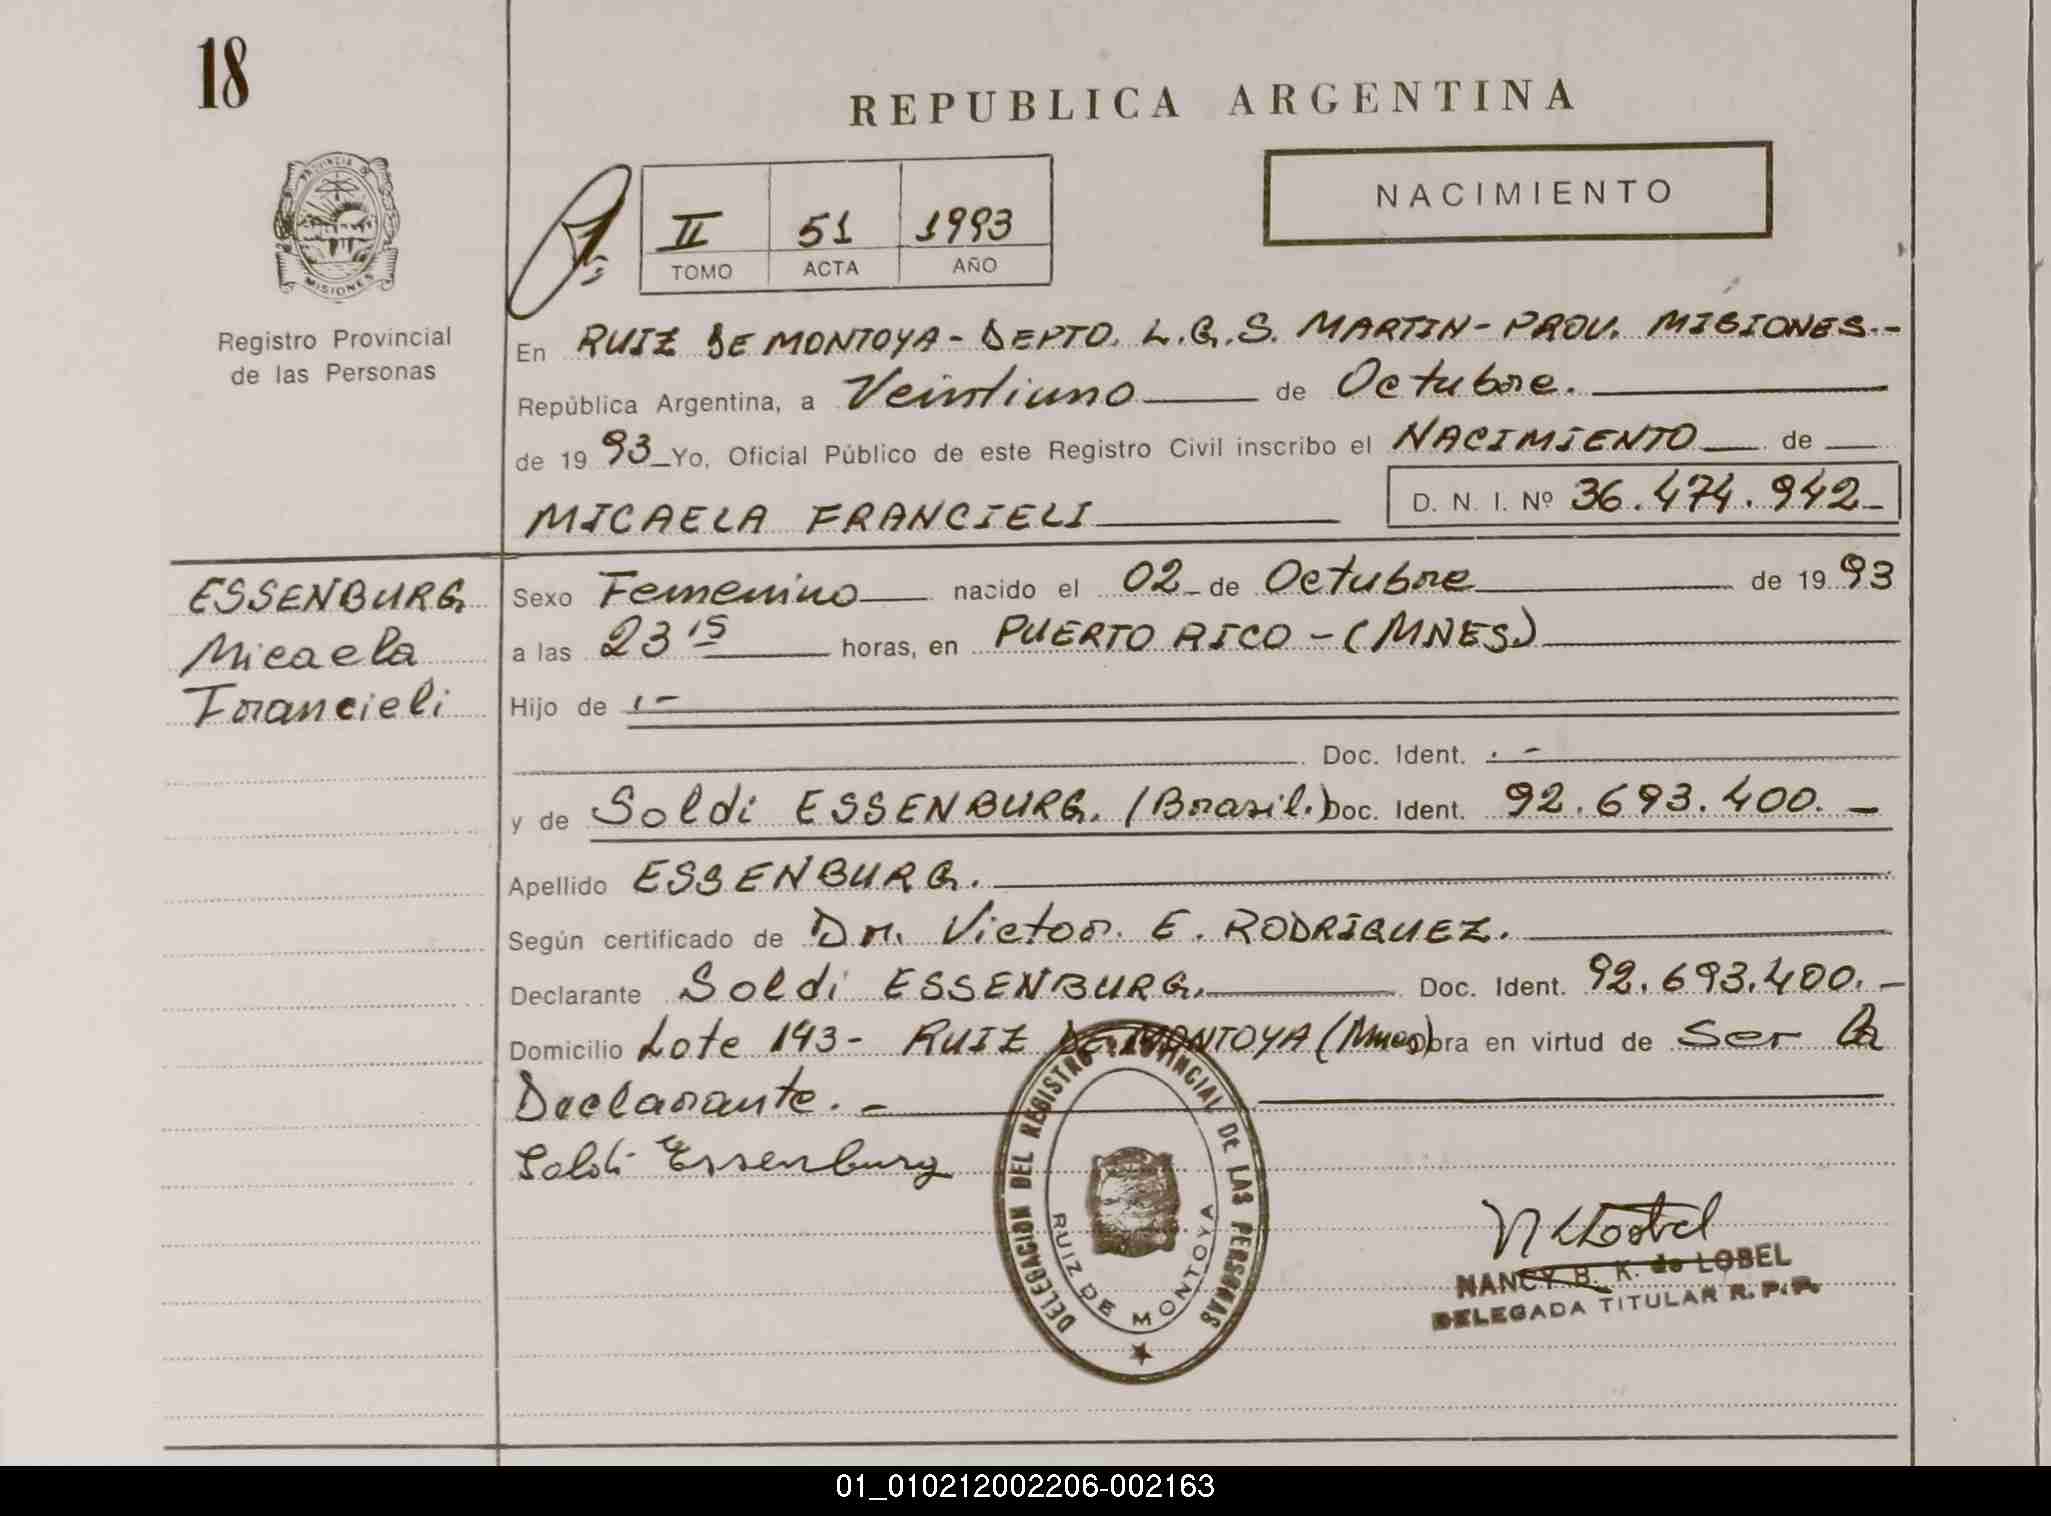 18
REPUBLICA ARGENTINA
PROVINCIA DE
MISIONES
Registro Provincial
de las Personas
NACIMIENTO
II 51 1993
TOMO ACTA AÑO
En RUIZ DE MONTOYA - DEPTO. L.G.S. MARTIN - PROV. MISIONES.-
República Argentina, a Veintiuno de Octubre.
de 19 93 Yo, Oficial Público de este Registro Civil inscribo el NACIMIENTO de
MICAELA FRANCIELI D. N. I. Nº 36.474.942-
ESSENBURG
Micaela
Francieli
Sexo Femenino nacido el 02 de Octubre de 19 93
a las 23 15 horas, en PUERTO RICO - (MNES)
Hijo de .-
Doc. Ident. .-
y de Soldi ESSENBURG. (Brasil.) Doc. Ident. 92.693.400.-
Apellido ESSENBURG.
Según certificado de Dr. Victor. E. RODRIGUEZ.
Declarante Soldi ESSENBURG. Doc. Ident. 92.693.400.-
Domicilio Lote 193- RUIZ DE MONTOYA (Mnes) obra en virtud de Ser la
Declarante.-
Soldi Essenburg
DELEGACION DEL REGISTRO PROVINCIAL DE LAS PERSONAS
RUIZ DE MONTOYA
NANCY B. K. de LOBEL
DELEGADA TITULAR R. P. P.
01_010212002206-002163